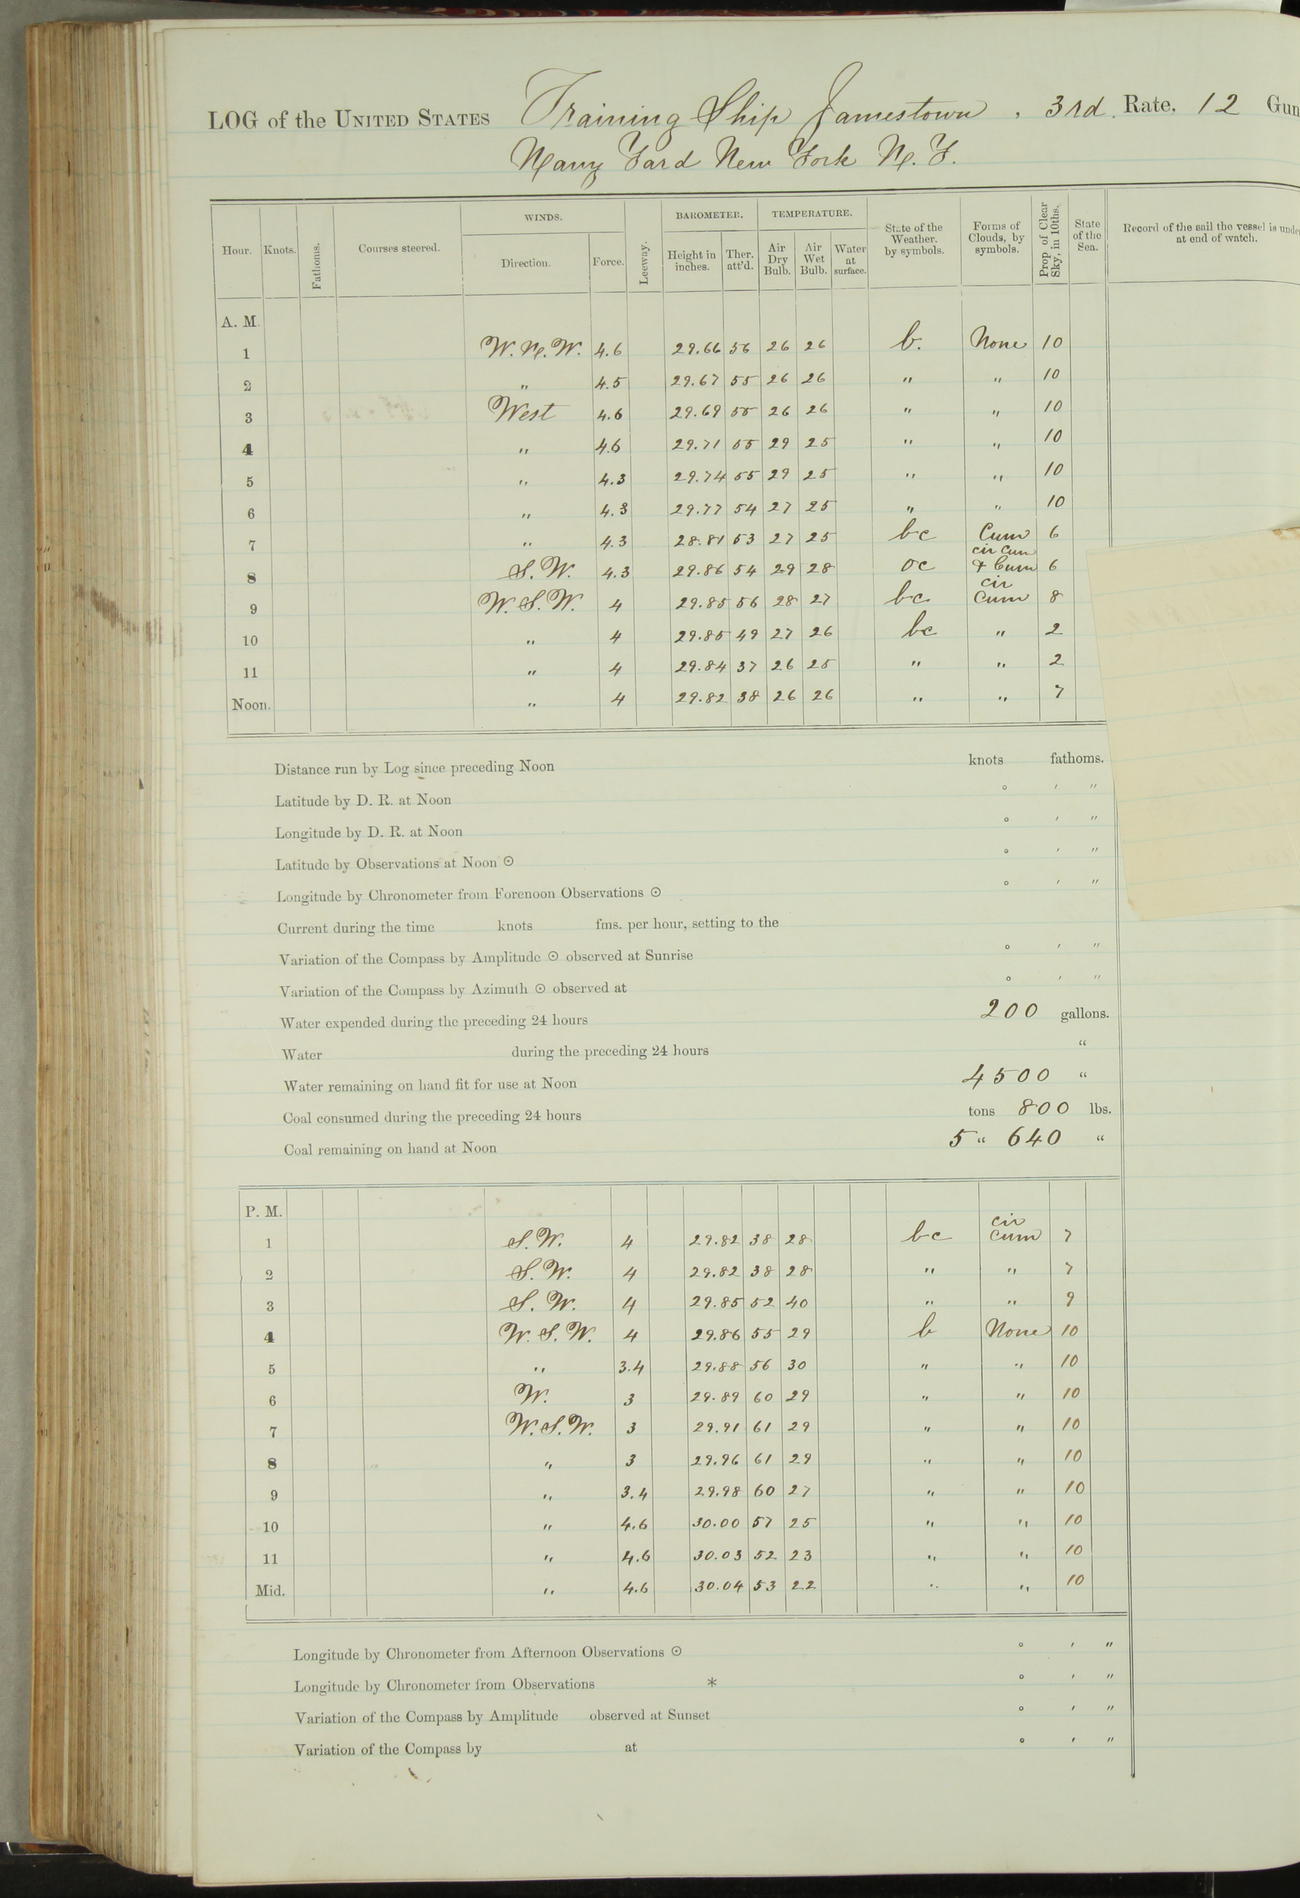 LOG of the UNITED STATES Training Ship Jamestown, 3rd. Rate, 12 Gun
Navy Yard New York N. Y.
Hour. Knots. Fathoms. Courses steered. WINDS. Direction. Force. Leeway. BAROMETER. Height in inches. Ther. att'd. TEMPERATURE. Air Dry Bulb. Air Wet Bulb. Water at surface. State of the Weather. by symbols. Forms of Clouds, by symbols. Prop. of Clear Sky, in 10ths. State of the Sea. Record of the sail the vessel is unde at end of watch.
A. M.
1 W. N. W. 4.6 29.66 56 26 26 b. None 10
2 " 4.5 29.67 55 26 26 " " 10
3 West 4.6 29.69 55 26 26 " " 10
4 " 4.6 29.71 55 29 25 " " 10
5 " 4.3 29.74 55 29 25 " " 10
6 " 4.3 29.77 54 27 25 " " 10
7 " 4.3 28.81 53 27 25 bc Cum 6
8 S. W. 4.3 29.86 54 29 28 oc cir cum & Cum 6
9 W. S. W. 4 29.85 56 28 27 bc cir Cum 8
10 " 4 29.85 49 27 26 bc " 2
11 " 4 29.84 37 26 25 " " 2
Noon. " 4 29.82 38 26 26 " " 7
Distance run by Log since preceding Noon knots fathoms.
Latitude by D. R. at Noon ° ′ ″
Longitude by D. R. at Noon ° ′ ″
Latitude by Observations at Noon ☉ ° ′ ″
Longitude by Chronometer from Forenoon Observations ☉ ° ′ ″
Current during the time knots fms. per hour, setting to the
Variation of the Compass by Amplitude ☉ observed at Sunrise ° ′ ″
Variation of the Compass by Azimuth ☉ observed at ° ′ ″
Water expended during the preceding 24 hours 200 gallons.
Water during the preceding 24 hours "
Water remaining on hand fit for use at Noon 4500 "
Coal consumed during the preceding 24 hours tons 800 lbs.
Coal remaining on hand at Noon 5 " 640 "
P. M.
1 S. W. 4 29.82 38 28 bc cir cum 7
2 S. W. 4 29.82 38 28 " " 7
3 S. W. 4 29.85 52 40 " " 9
4 W. S. W. 4 29.86 55 29 b None 10
5 " 3.4 29.88 56 30 " " 10
6 W. 3 29.89 60 29 " " 10
7 W. S. W. 3 29.91 61 29 " " 10
8 " 3 29.96 61 29 " " 10
9 " 3.4 29.98 60 27 " " 10
10 " 4.6 30.00 57 25 " " 10
11 " 4.6 30.03 52 23 " " 10
Mid. " 4.6 30.04 53 22 " " 10
Longitude by Chronometer from Afternoon Observations ☉ ° ′ ″
Longitude by Chronometer from Observations * ° ′ ″
Variation of the Compass by Amplitude observed at Sunset ° ′ ″
Variation of the Compass by at ° ′ ″